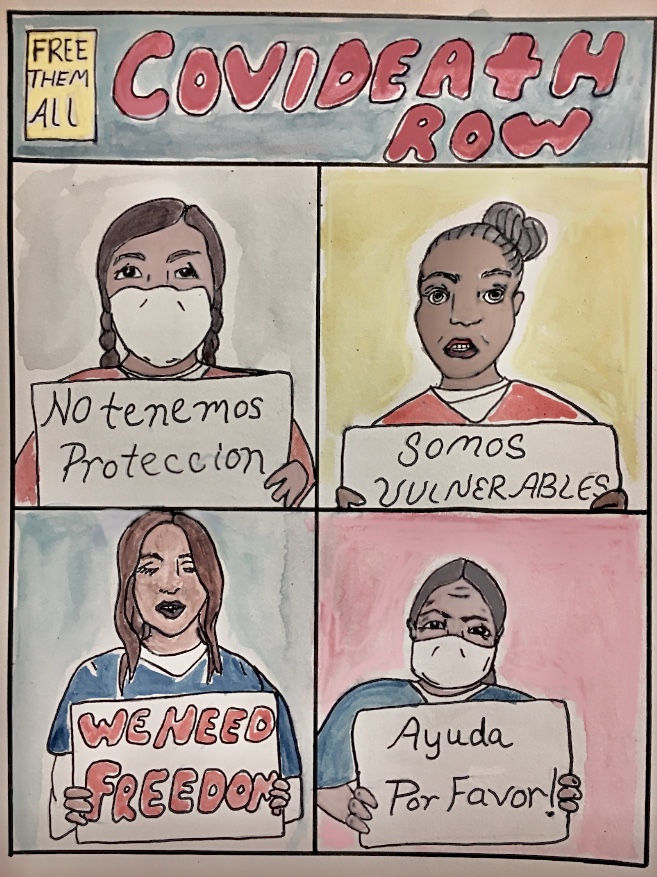 FREE
THEM
ALL
COVIDEATH
ROW
No tenemos
Proteccion
SOMOS
VULNERABLES
WE NEED
FREEDOM
Ayuda
Por Favor!